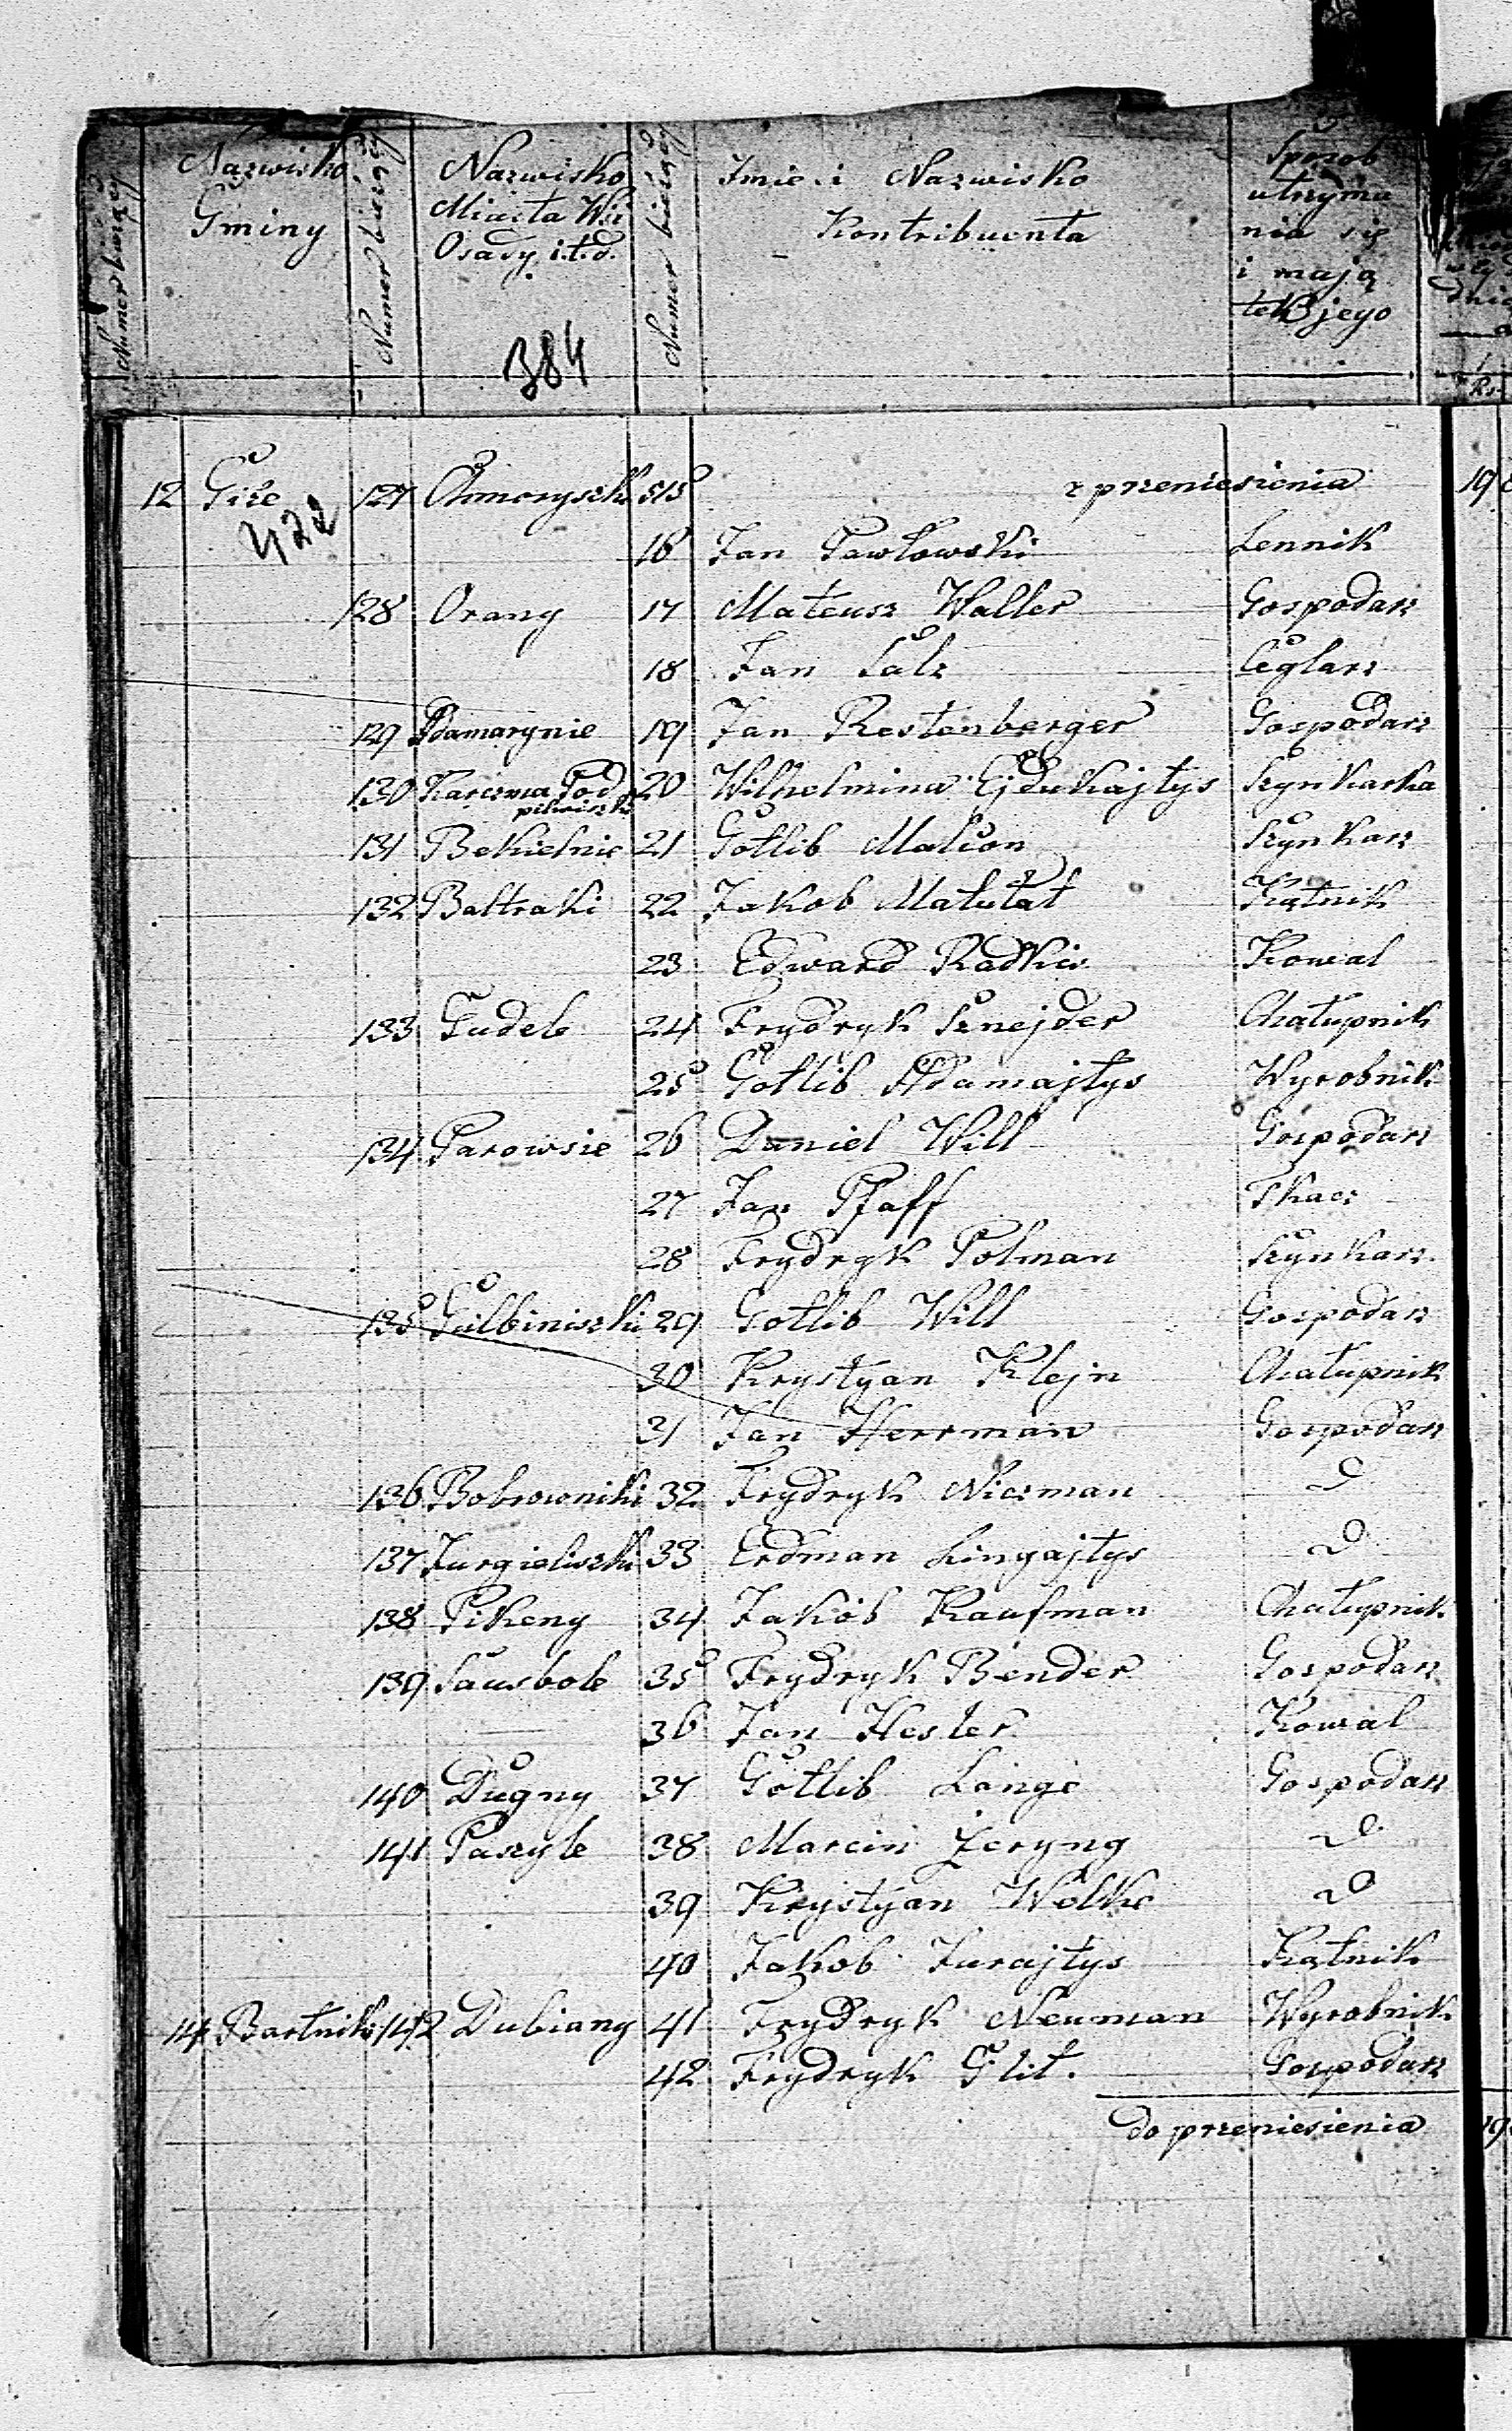 Numer bieżący Nazwisko Gminy Numer bieżący Nazwisko Miasta Wsi Osady i.t.d. Numer bieżący Imie i Nazwisko Kontribuenta Sposób utrzyma nia się i mają tek jego
384
12 Giże 127 515 z przeniesienia 19
422
16 Jan Pawłowski Lennik
128 Orany 17 Mateusz Waller Gospodarz
18 Jan Salz Ceglarz
129 Adamarynie 19 Jan Restenberger Gospodarz
130 Karczma Pod pilwiszki 20 Wilhelmina Ejdukajtys Szynkarka
131 Bekielnie 21 Gotlib Malion Szynkarz
132 Baltraki 22 Jakob Matutat Kątnik
23 Edward Radkis Kowal
133 Gudele 24 Frydryk Sznejder Chałupnik
25 Gotlib Adamajtys Wyrobnik
134 Parowsie 26 Daniel Will Gospodarz
27 Jan Pfaff Tkacz
28 Frydryk Polman Szynkarz
135 Gulbiniszki 29 Gotlib Will Gospodarz
30 Krystyan Klejn Chałupnik
31 Jan Herrman Gospodarz
136 Bobrowniki 32 Frydryk Niczman D
137 Jurgieliszki 33 Erdman Lingajtys D
138 Pikeny 34 Jakób Kaufman Chałupnik
139 Sausbole 35 Frydryk Bender Gospodarz
36 Jan Hesler Kowal
140 Dugny 37 Gotlib Lange Gospodarz
141 Paszyle 38 Marcin Zeryng D
39 Krystyan Wolke D
40 Jakob Jurajtys Kątnik
14 Bartniki 142 Dubiany 41 Frydryk Neuman Wyrobnik
42 Frydryk Glit. Gospodarz
do przeniesienia 19